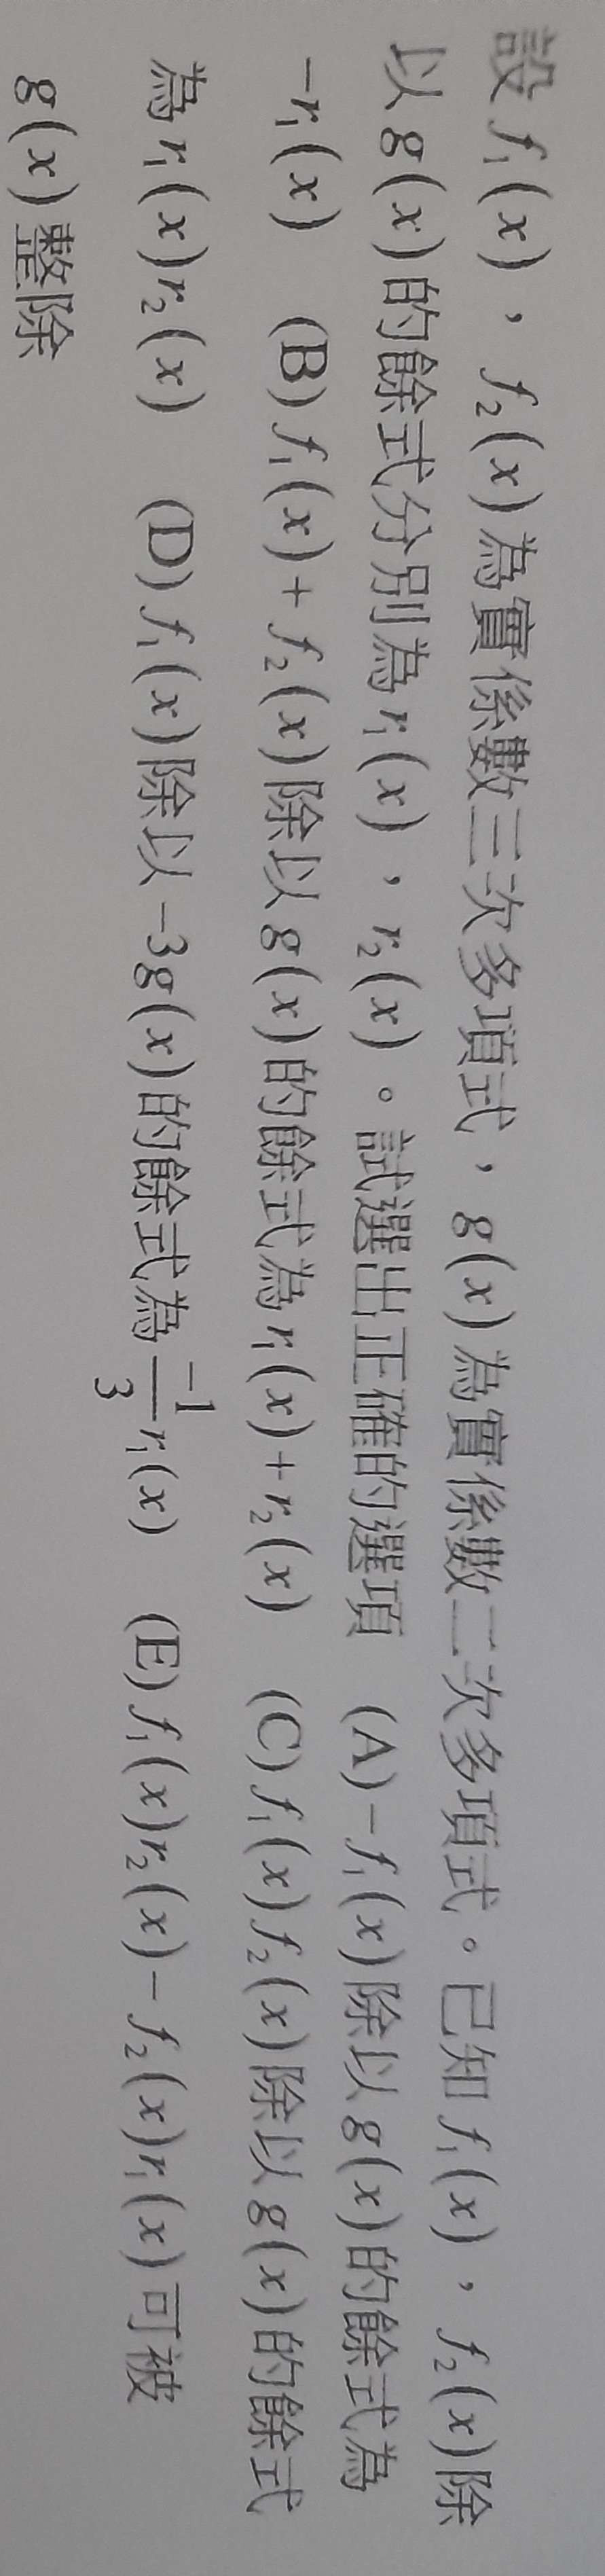 設 f₁(x),f₂(x)為實係數三次多項式,g(x)為實係數二次多項式。已知 f₁(x),f₂(x)除
以 g(x)的餘式分別為 r₁(x),r₂(x)。試選出正確的選項 (A)-f₁(x)除以 g(x)的餘式為
-r₁(x) (B) f₁(x)+f₂(x)除以 g(x)的餘式為 r₁(x)+r₂(x) (C) f₁(x)f₂(x)除以 g(x)的餘式
為 r₁(x)r₂(x) (D) f₁(x)除以 -3g(x)的餘式為 \frac{-1}{3}r₁(x) (E) f₁(x)r₂(x)-f₂(x)r₁(x)可被
g(x)整除